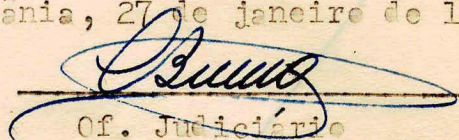 ânia, 27 de janeiro de 1
Of. Judiciário